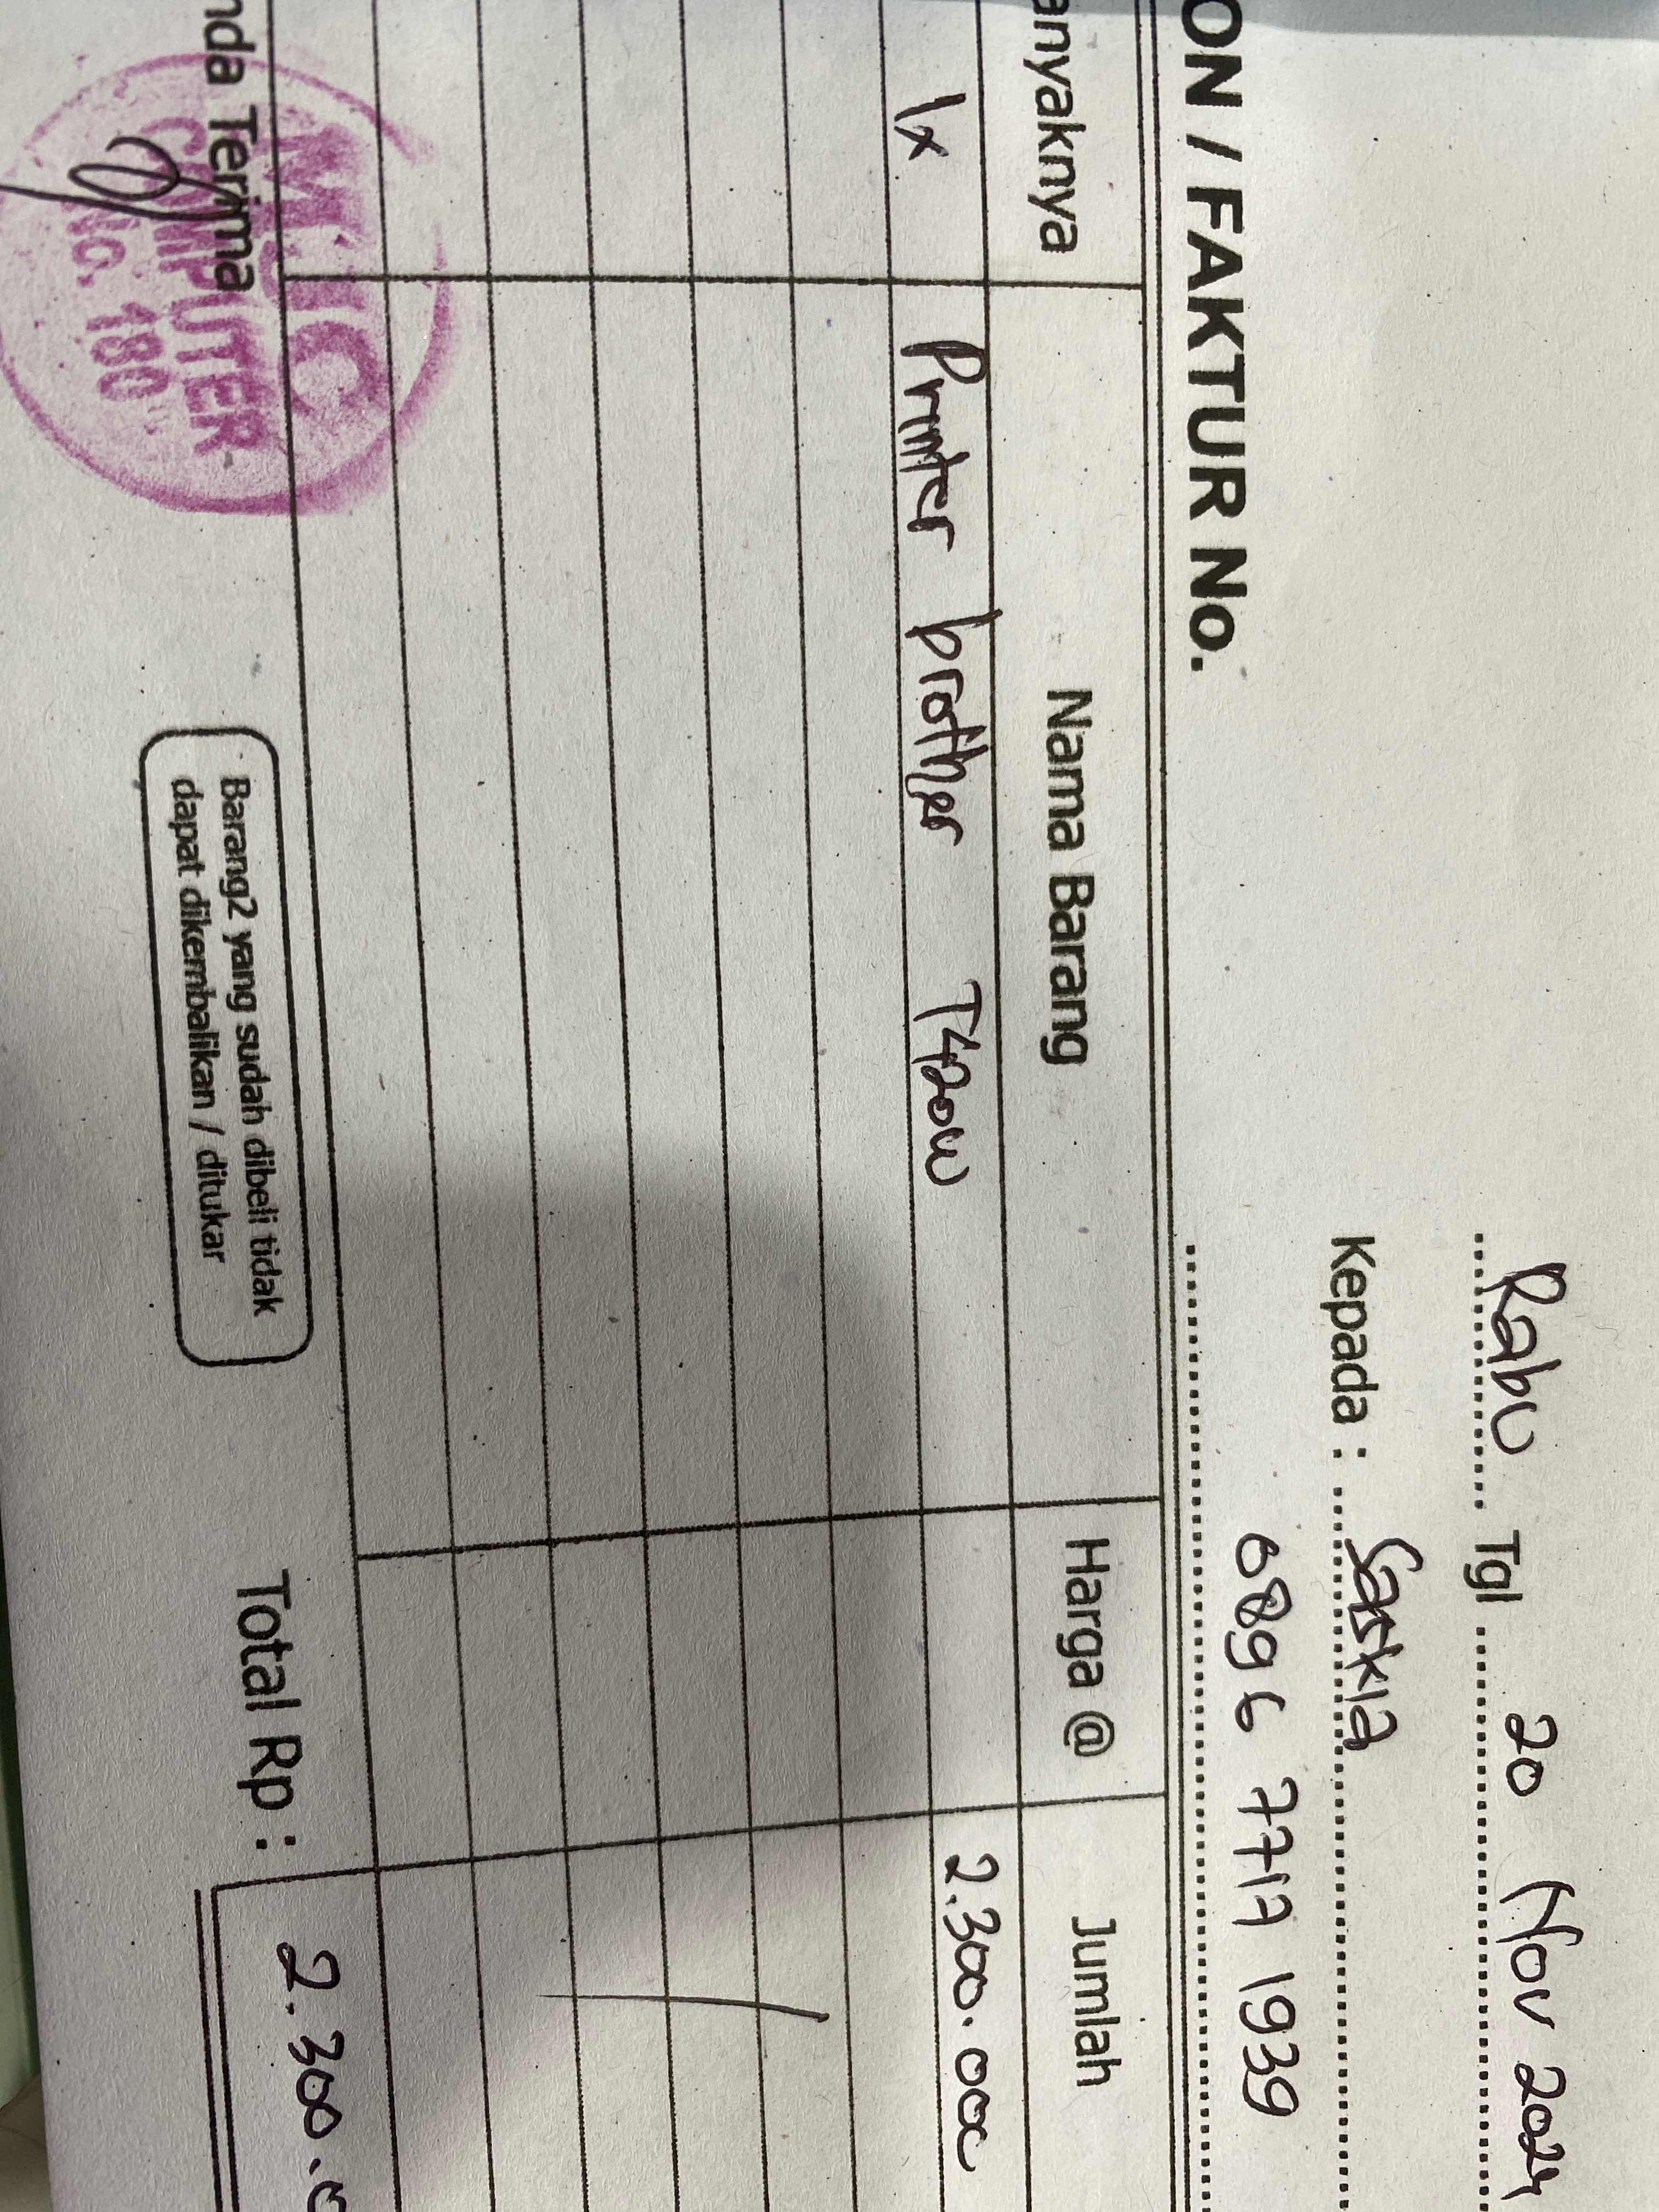 Rabu Tgl 20 Nov 2024
Kepada : Saskia
0896 7717 1939
ON / FAKTUR No.
anyaknya Nama Barang Harga @ Jumlah
1x Printer brother T420W 2.300.000
nda Terima
MUGIC
COMPUTER
No. 180
Barang2 yang sudah dibeli tidak
dapat dikembalikan / ditukar
Total Rp : 2.300.0